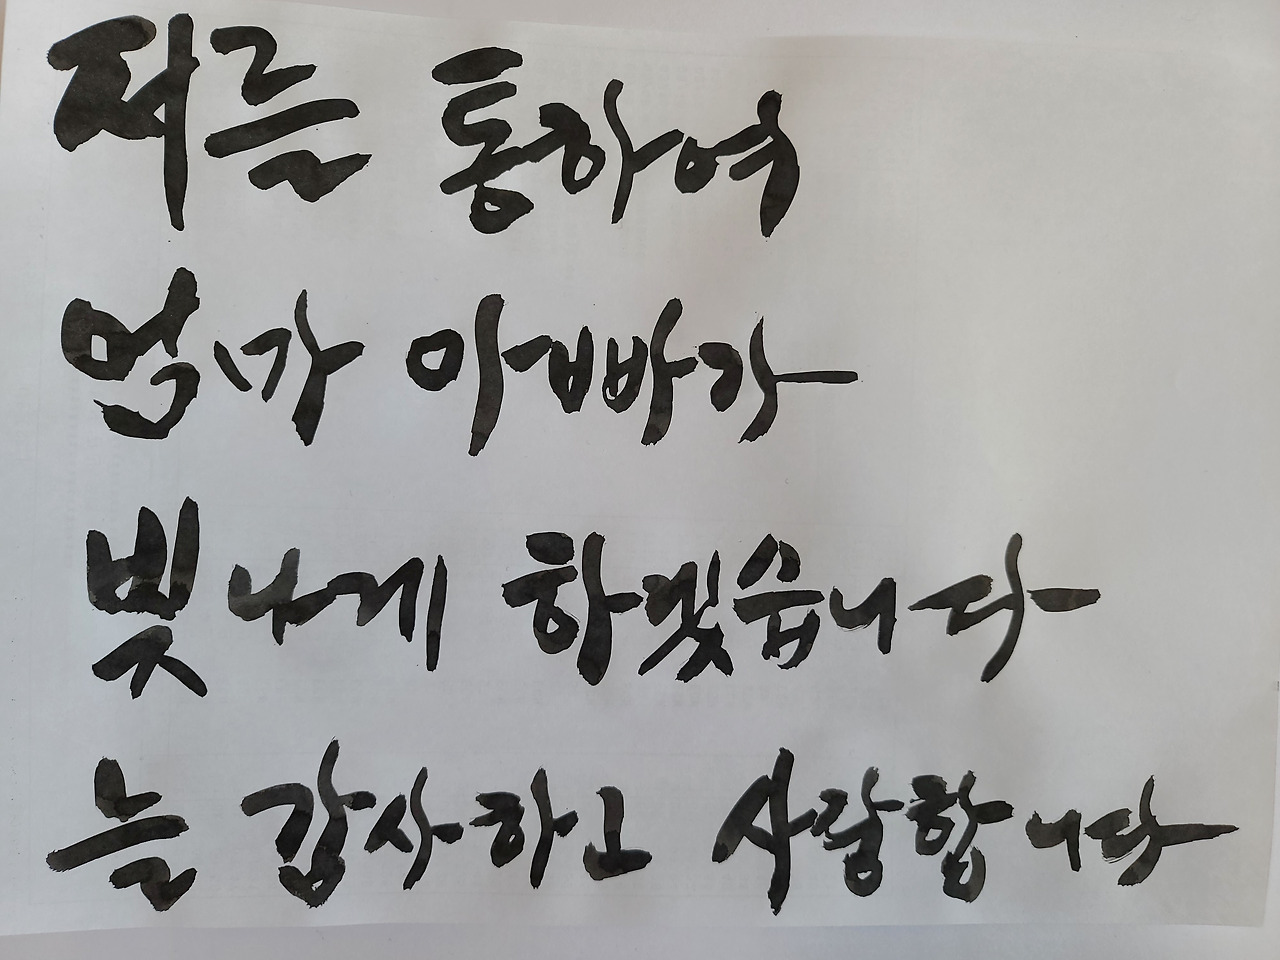 저를 통하여
엄마 아빠가
빛나게 하겠습니다
늘 감사하고 사랑합니다